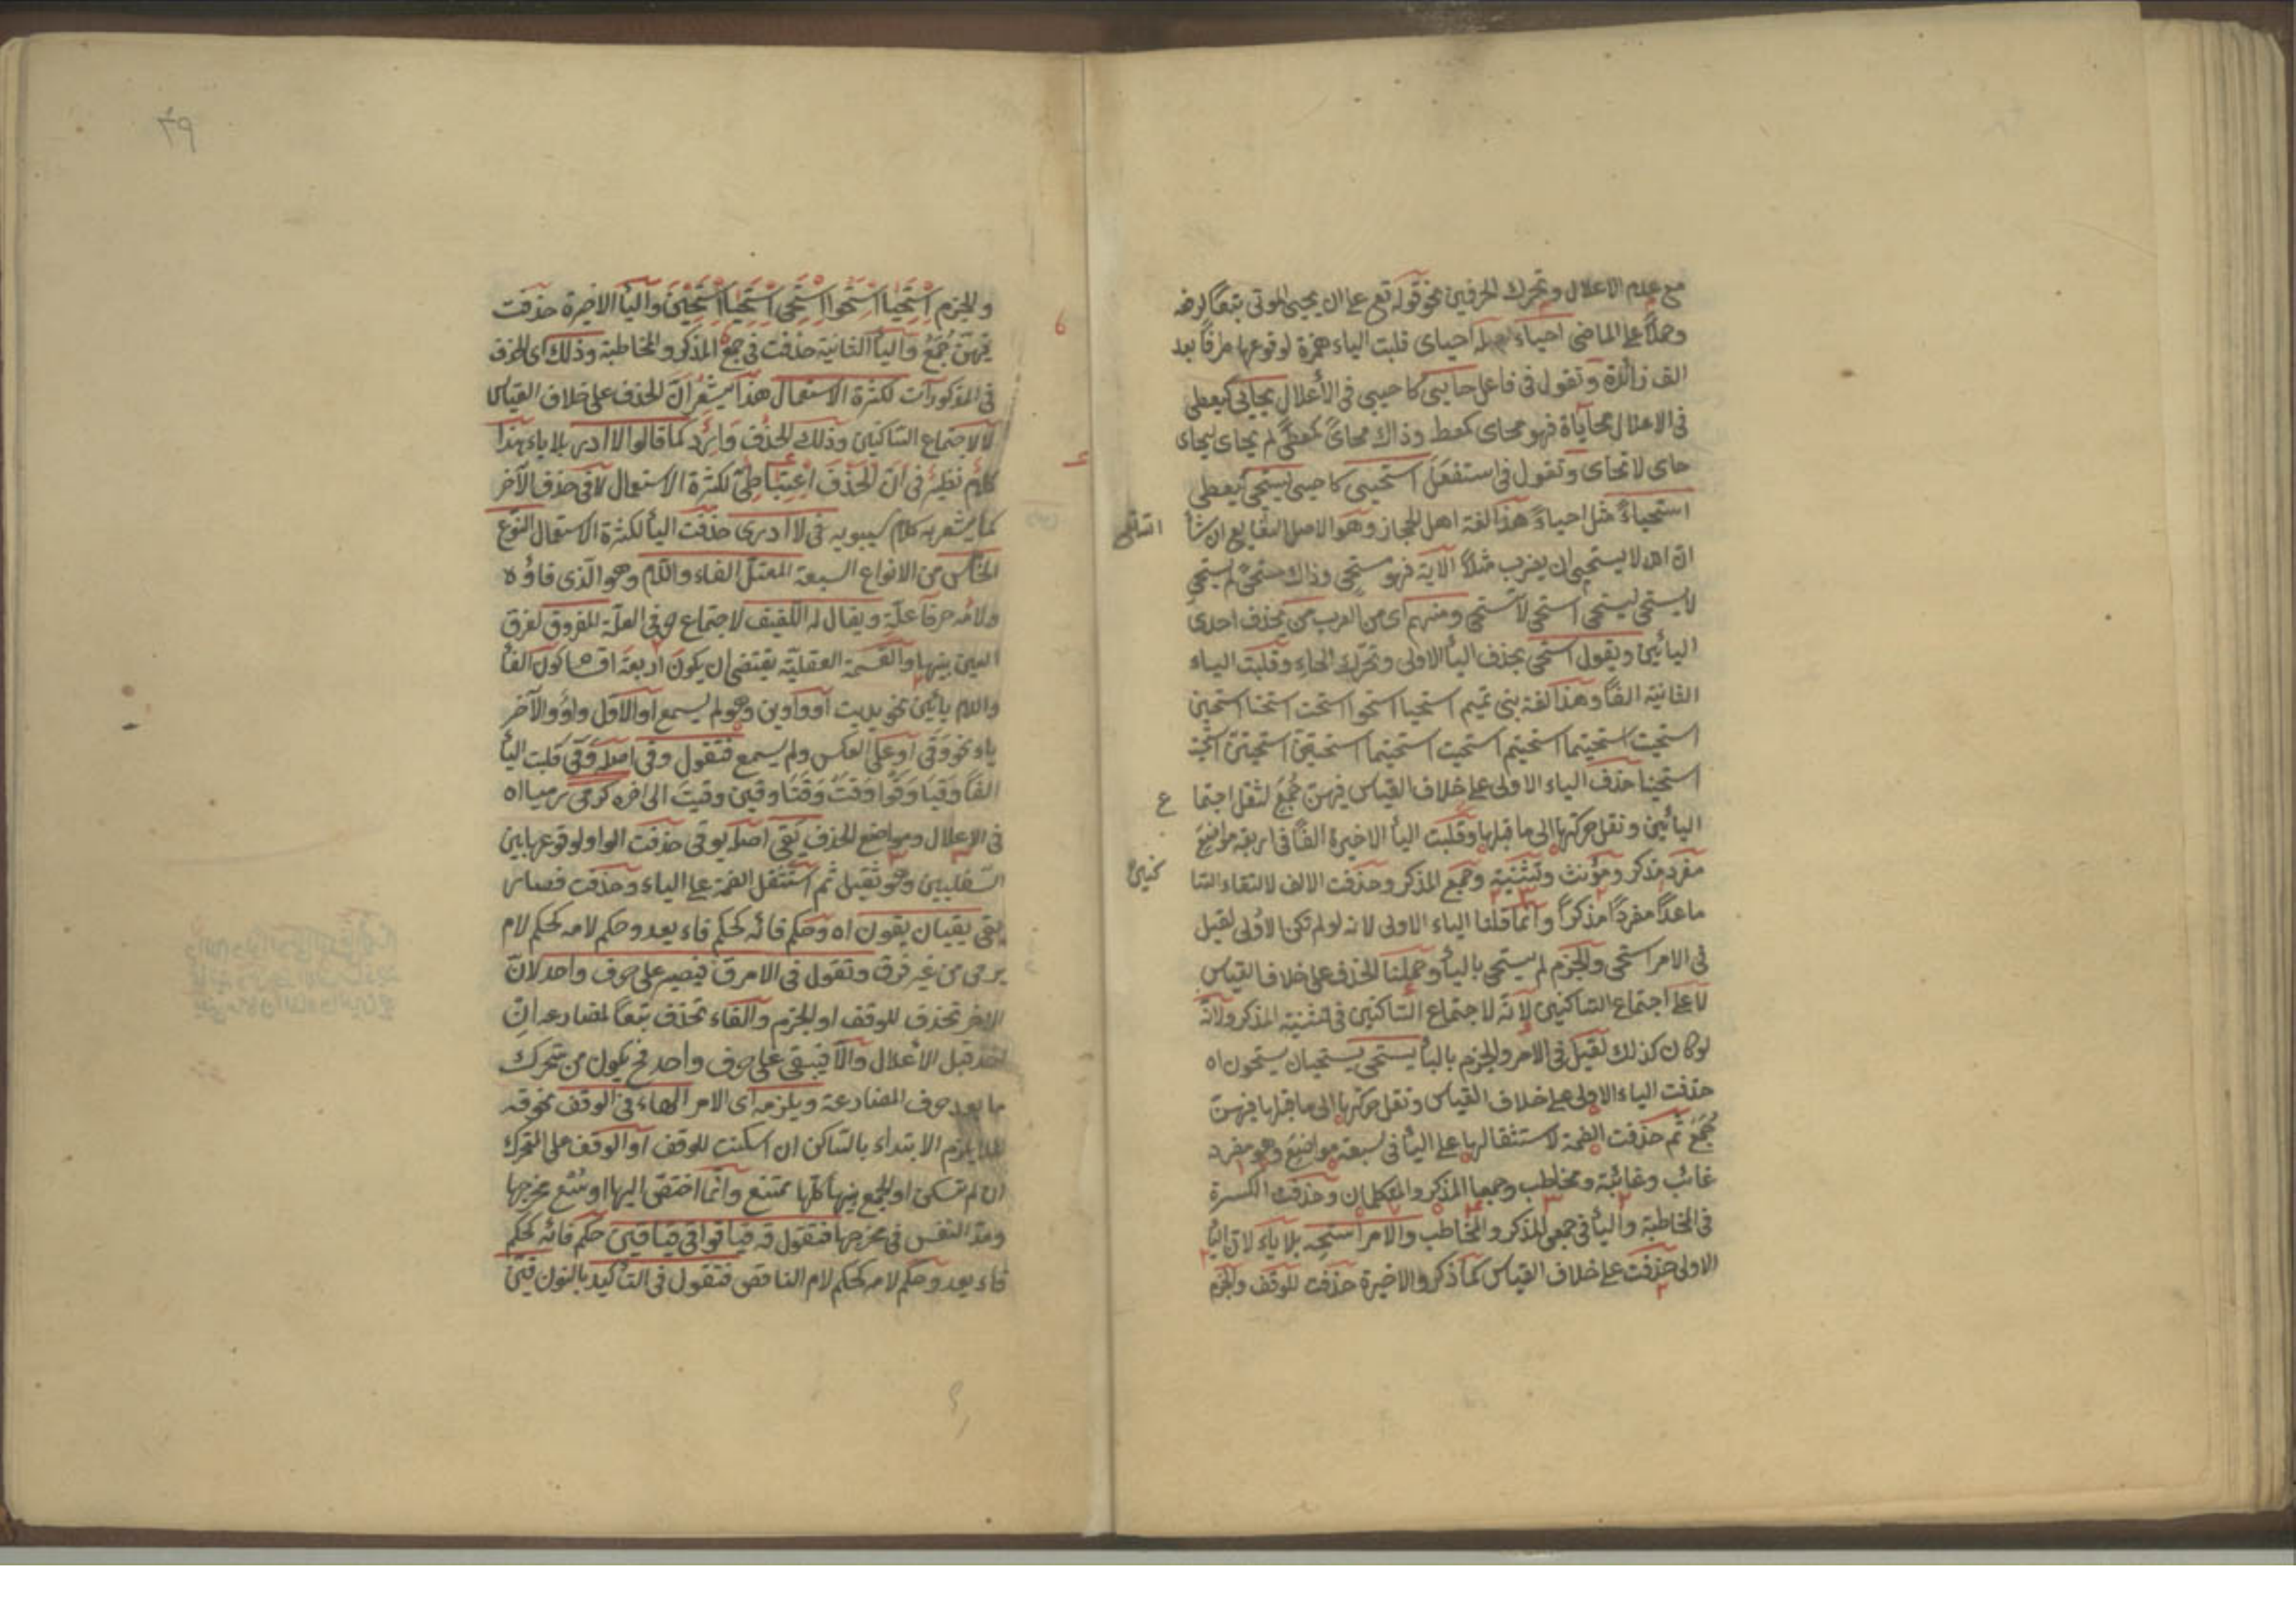 مع عدم الاعلال وتحرك الحرفين نحو قوله تع على ان يحيى الموتى تبعا
وحملا على الماضى احياء اصله احياى قلبت الياء همزة لوقوعها طرفا بعد
الف زائدة وتقول فى فاعل حايى كاحيى فى الأعلال يحايى كيعطى
فى الاعلال محاياة فهو محاى كمعط وذاك محاىً كمعطىً لم يحاى ليحاى
حاى لا تحاى وتقول فى استفعل استحيى كاحيى يستحيى كيعطى
استحياءً مثل احياءً هذا لغة اهل الحجاز وهو الاصل الشايع ان شأ
ان الله لا يستحيى ان يضرب مثلاً الآية فهو مستحى وذاك مستحىً لم يستحى
لا يستحى ليستحى استحى لا تستحى ومنهم اى من العرب من يحذف احدى
اليائين ويقول استحى بحذف اليأ الاولى وتحرك الحاء وقلبت الياء
الثانية الفاً وهذا لغة بنى تميم استحيا استحوا استحت استحتا استحين
استحيت استحيتما استحيتم استحيت استحيتما استحيتن
استحينا حذف الياء الاولى على خلاف القياس فيهن جُمَعُ لثقل اجتما
ع
اليائين ونقل حركتها الى ما قبلها وقلبت اليأ الاخيرة الفاً فى اربعة مواضع
مفرد مذكر ومؤنث وتثنيته وجمع المذكر وحذفت الالف لالتقاء السا
كنين
ماعدا مفرداً مذكراً وانما قلنا الياء الاولى لانه لو لم تكن الاولى لقيل
فى الامر استحى والجزم لم يستحى باليأ وحملنا الحذف على خلاف القياس
لا على اجتماع الساكنين لانه لا اجتماع الساكنين فى تثنية المذكر ولانه
لو كان كذلك لقيل فى الامر والجزم باليأ يستحى يستحيان يستحون اه
حذفت الياء الاولى على خلاف القياس ونقل حركتها الى ما قبلها فيهن
جُمَعَ ثم حذفت الضمة لاستثقالها على اليأ فى سبعة مواضع وهو مفرد
غائب وغائبة ومخاطب وجمعا المذكر والمتكلمان وحذفت الكسرة
فى المخاطبة واليأ فى جمعى المذكر والمخاطب والامر استحِ بلا ياء لان اليأ
الاولى حذفت على خلاف القياس كما ذكر والاخيرة حذفت للوقف والجزم
٣٩
والجزم استحيا استحوا استحى استحيا استحين واليأ الاخيرة حذفت
فيهن جُمَعُ واليأ الثانية حذفت فى جمع المذكر والمخاطبة وذلك اى الحذف
فى المذكورات لكثرة الاستعمال هذا يشعر ان الحذف على خلاف القياس
لا لاجتماع الساكنين وذلك الحذف وارد كما قالوا لا ادر بلا ياء هذا
كلام نظير فى ان الحذف اعتباطى لكثرة الاستعمال لا فى حذف الآخر
كما يشعر به كلام سيبويه فى لا ادرى حذفت اليأ لكثرة الاستعمال النوع
الخامس من الانواع السبعة المعتل الفاء واللام وهو الذى فاؤه
ولامه حرفا علة ويقال له اللفيف لاجتماع حرفى العلة المفروق لفرق
العين بينهما والقسمة العقلية يقتضى ان يكون اربعة اقسام كون الفأ
واللام يائين نحو يديت او واوين وهو لم يسمع او الاول واو والآخر
ياء نحو وقى او على العكس ولم يسمع فتقول وقى اصله وَقَىَ قلبت اليأ
الفاً وقيا وقوا وقت وقتا وقين وقيت الى اخره كرمى رميا اه
فى الاعلال ومواضع الحذف يقى اصله يوقى حذفت الواو لوقوعها بين
وهو ثقيل ثم استثقل الضمة على الياء وحذفت فصار
يقى يقيان يقون اه وحكم فائه كحكم فاء يعد وحكم لامه كحكم لام
يرمى من غير فرق وتقول فى الامر قِ فيصير على حرف واحد لان
الاخر تحذف للوقف او الجزم والفاء تحذف تبعا لمضارعه ان
اخذ قبل الأعلال والا فيبقى على حرف واحد فح يكون من تحرك
ما بعد حرف المضارعة ويلزمه اى الامر الهاء فى الوقف نحو قه
لئلا يلزم الابتداء بالساكن ان اسكنت للوقف او الوقف على المتحرك
ان لم تسكن او الجمع بينها كلها ممتنع وانما اختص اليها اوسع مخرجها
ومد النفس فى مخرجها فتقول قه قيا قوا قى قيا قين حكم فائه كحكم
فاء يعد وحكم لامه كحكم لام الناقص فتقول فى التأكيد بالنون قينَّ